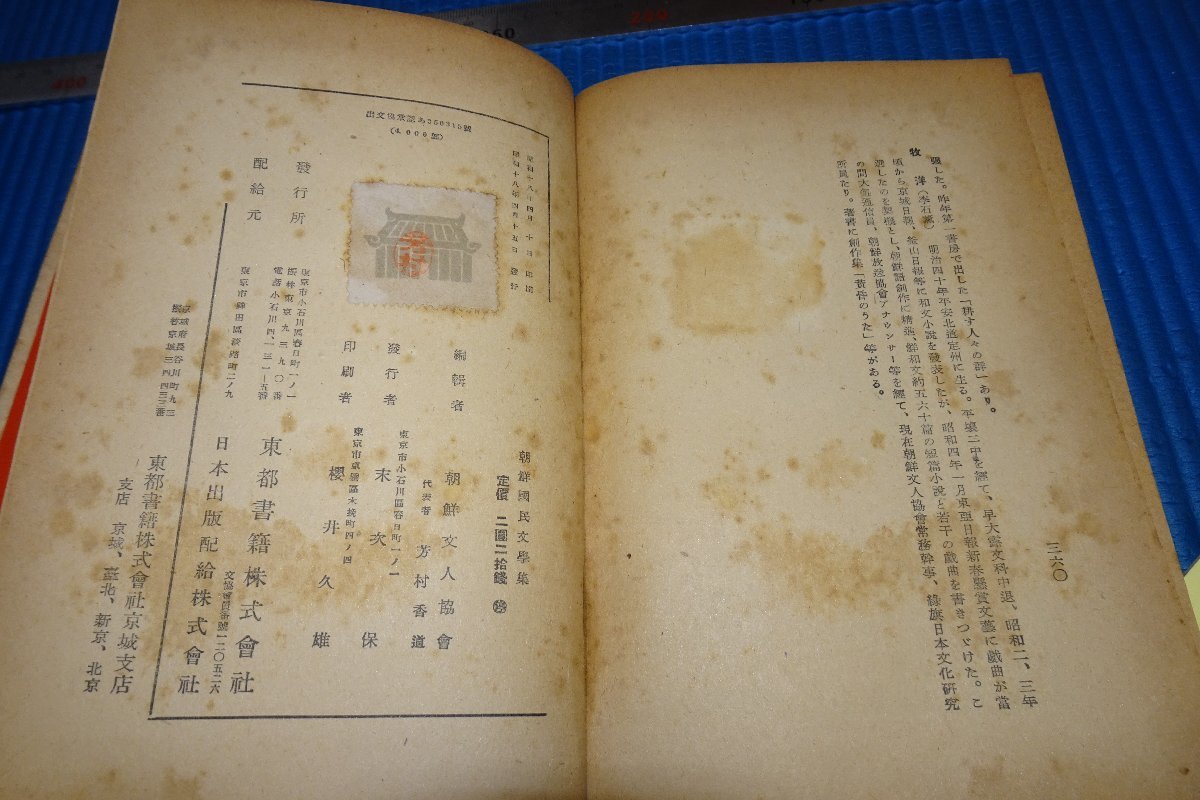 三六〇
現した。昨年第一書房で出した「耕す人々の群」あり。
牧 洋（李石薫） 明治四十年平安北道定州に生る。平壤二中を經て、早大露文科中退、昭和二、三年
頃から京城日報、釜山日報等に和文小説を發表したが、昭和四年一月東亞日報新春懸賞文藝に戯曲が當
選したのを契機とし、朝鮮語創作に精進、鮮和文約五六十篇の短篇小説と若干の戯曲を書きつゞけた。こ
の間大每通信員、朝鮮放送協會アナウンサー等を經て、現在朝鮮文人協會常務幹事、綠旗日本文化研究
所員たり。著書に創作集「黃昏のうた」等がある。
出文協承認あ350315號
(4,000部)
昭和十八年四月 十日 印刷
昭和十八年四月十五日 發行
朝鮮國民文學集
定價 二圓二拾錢
編輯者 朝鮮文人協會
代表者 芳村香道
東京市小石川區春日町一ノ一
發行者 末次 保
東京市京橋區木挽町四ノ四
印刷者 櫻井久雄
發行所
東京市小石川區春日町一ノ一
振替東京九三九〇番
電話小石川四、一三一―五番
東都書籍株式會社
文協會員番號一二〇五二六
配給元
東京市神田區淡路町二ノ九
日本出版配給株式會社
京城府長谷川町九三
振替京城三四四三二番
東都書籍株式會社京城支店
支店 京城、臺北、新京、北京
400
200